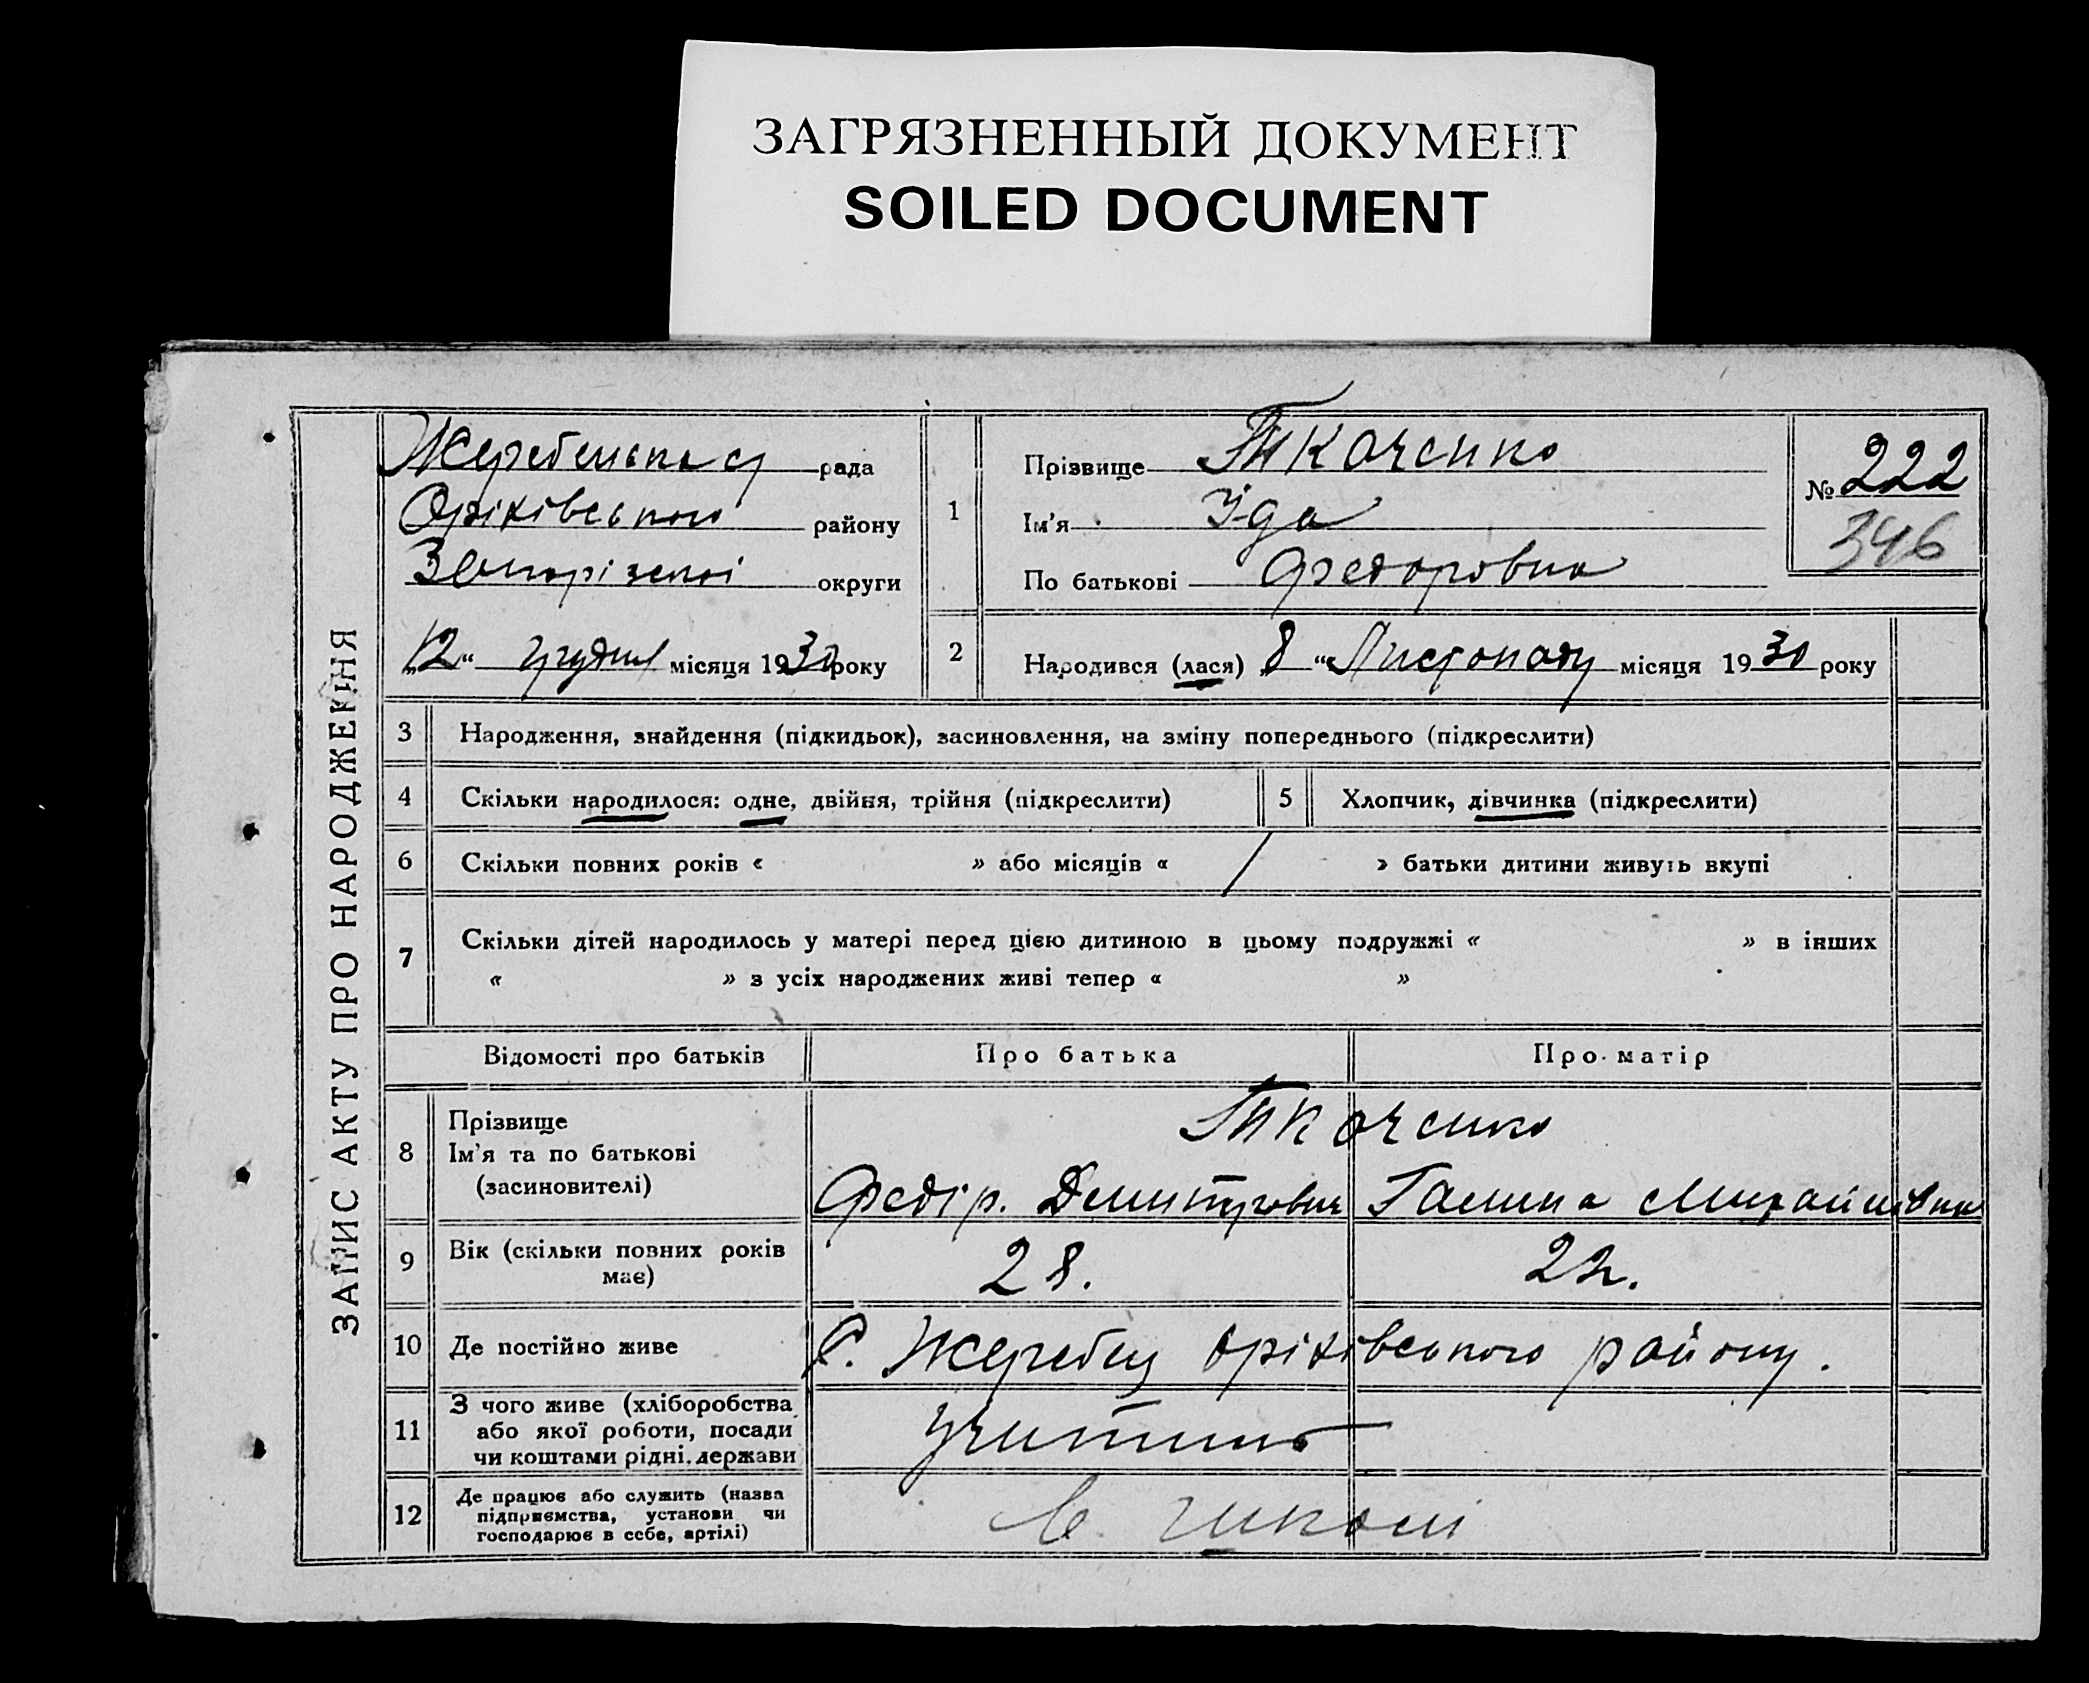 ЗАГРЯЗНЕННЫЙ ДОКУМЕНТ
SOILED DOCUMENT
ЗАПИС АКТУ ПРО НАРОДЖЕННЯ
Жеребецька с/ рада
Оріхівського району
Запорізької округи
„12“ грудня місяця 1930 року
1 Прізвище Ткаченко
Ім'я Іда
По батькові Федоровна
№ 222
346
2 Народився (лася) „8“ Листопаду місяця 1930 року
3 Народження, знайдення (підкидьок), засиновлення, на зміну попереднього (підкреслити)
4 Скільки народилося: одне, двійня, трійня (підкреслити) 5 Хлопчик, дівчинка (підкреслити)
6 Скільки повних років « » або місяців « / » батьки дитини живуть вкупі
7 Скільки дітей народилось у матері перед цією дитиною в цьому подружжі « » в інших
« » з усіх народжених живі тепер « »
Відомості про батьків Про батька Про матір
8 Прізвище
Ім'я та по батькові
(засиновителі)
Ткаченко
Федір. Дмитрович Галина Михайлівна
9 Вік (скільки повних років
має)
28. 22.
10 Де постійно живе С. Жеребец Оріхівського району.
11 З чого живе (хліборобства
або якої роботи, посади
чи коштами рідні, держави
учитель
12 Де працює або служить (назва
підприємства, установи чи
господарює в себе, артілі)
в школі